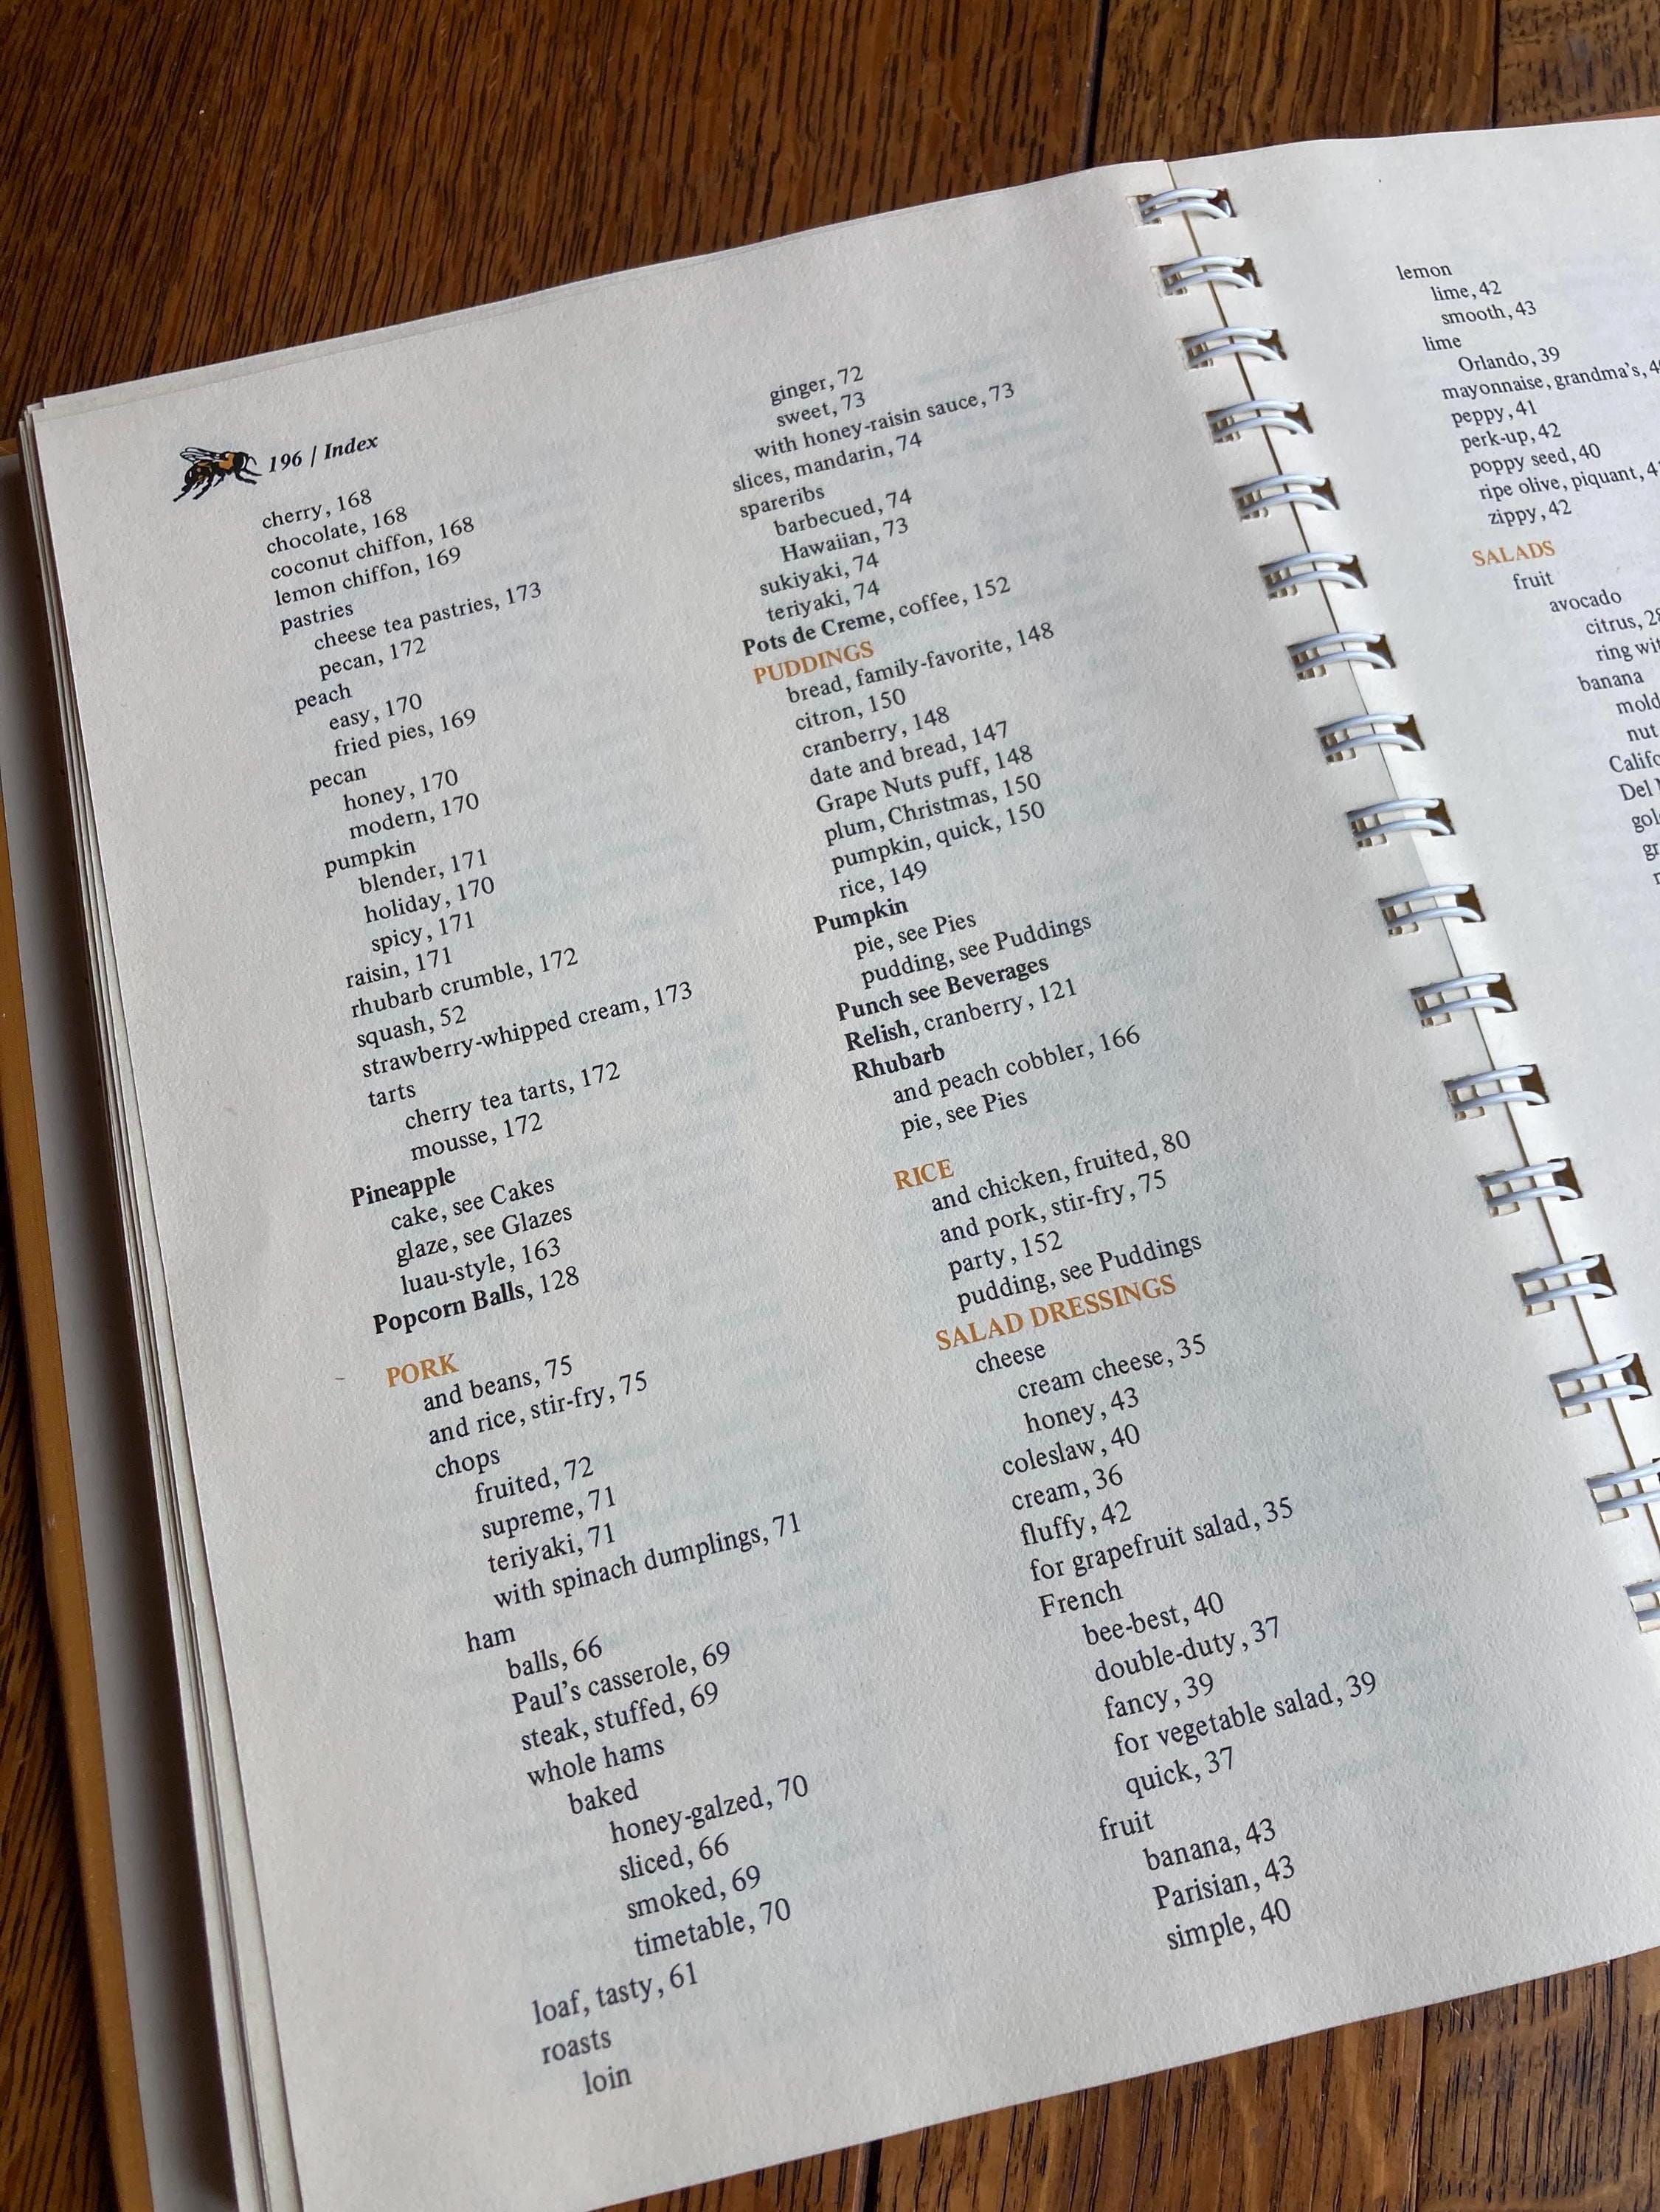 196 / Index
cherry, 168
chocolate, 168
coconut chiffon, 168
lemon chiffon, 169
pastries
cheese tea pastries, 173
pecan, 172
peach
easy, 170
fried pies, 169
pecan
honey, 170
modern, 170
pumpkin
blender, 171
holiday, 170
spicy, 171
raisin, 171
rhubarb crumble, 172
squash, 52
strawberry-whipped cream, 173
tarts
cherry tea tarts, 172
mousse, 172
Pineapple
cake, see Cakes
glaze, see Glazes
luau-style, 163
Popcorn Balls, 128
PORK
and beans, 75
and rice, stir-fry, 75
chops
fruited, 72
supreme, 71
teriyaki, 71
with spinach dumplings, 71
ham
balls, 66
Paul's casserole, 69
steak, stuffed, 69
whole hams
baked
honey-galzed, 70
sliced, 66
smoked, 69
timetable, 70
loaf, tasty, 61
roasts
loin
ginger, 72
sweet, 73
with honey-raisin sauce, 73
slices, mandarin, 74
spareribs
barbecued, 74
Hawaiian, 73
sukiyaki, 74
teriyaki, 74
Pots de Creme, coffee, 152
PUDDINGS
bread, family-favorite, 148
citron, 150
cranberry, 148
date and bread, 147
Grape Nuts puff, 148
plum, Christmas, 150
pumpkin, quick, 150
rice, 149
Pumpkin
pie, see Pies
pudding, see Puddings
Punch see Beverages
Relish, cranberry, 121
Rhubarb
and peach cobbler, 166
pie, see Pies
RICE
and chicken, fruited, 80
and pork, stir-fry, 75
party, 152
pudding, see Puddings
SALAD DRESSINGS
cheese
cream cheese, 35
honey, 43
coleslaw, 40
cream, 36
fluffy, 42
for grapefruit salad, 35
French
bee-best, 40
double-duty, 37
fancy, 39
for vegetable salad, 39
quick, 37
fruit
banana, 43
Parisian, 43
simple, 40
lemon
lime, 42
smooth, 43
lime
Orlando, 39
mayonnaise, grandma's,
peppy, 41
perk-up, 42
poppy seed, 40
ripe olive, piquant,
zippy, 42
SALADS
fruit
avocado
citrus,
ring
banana
mold
nut
Del